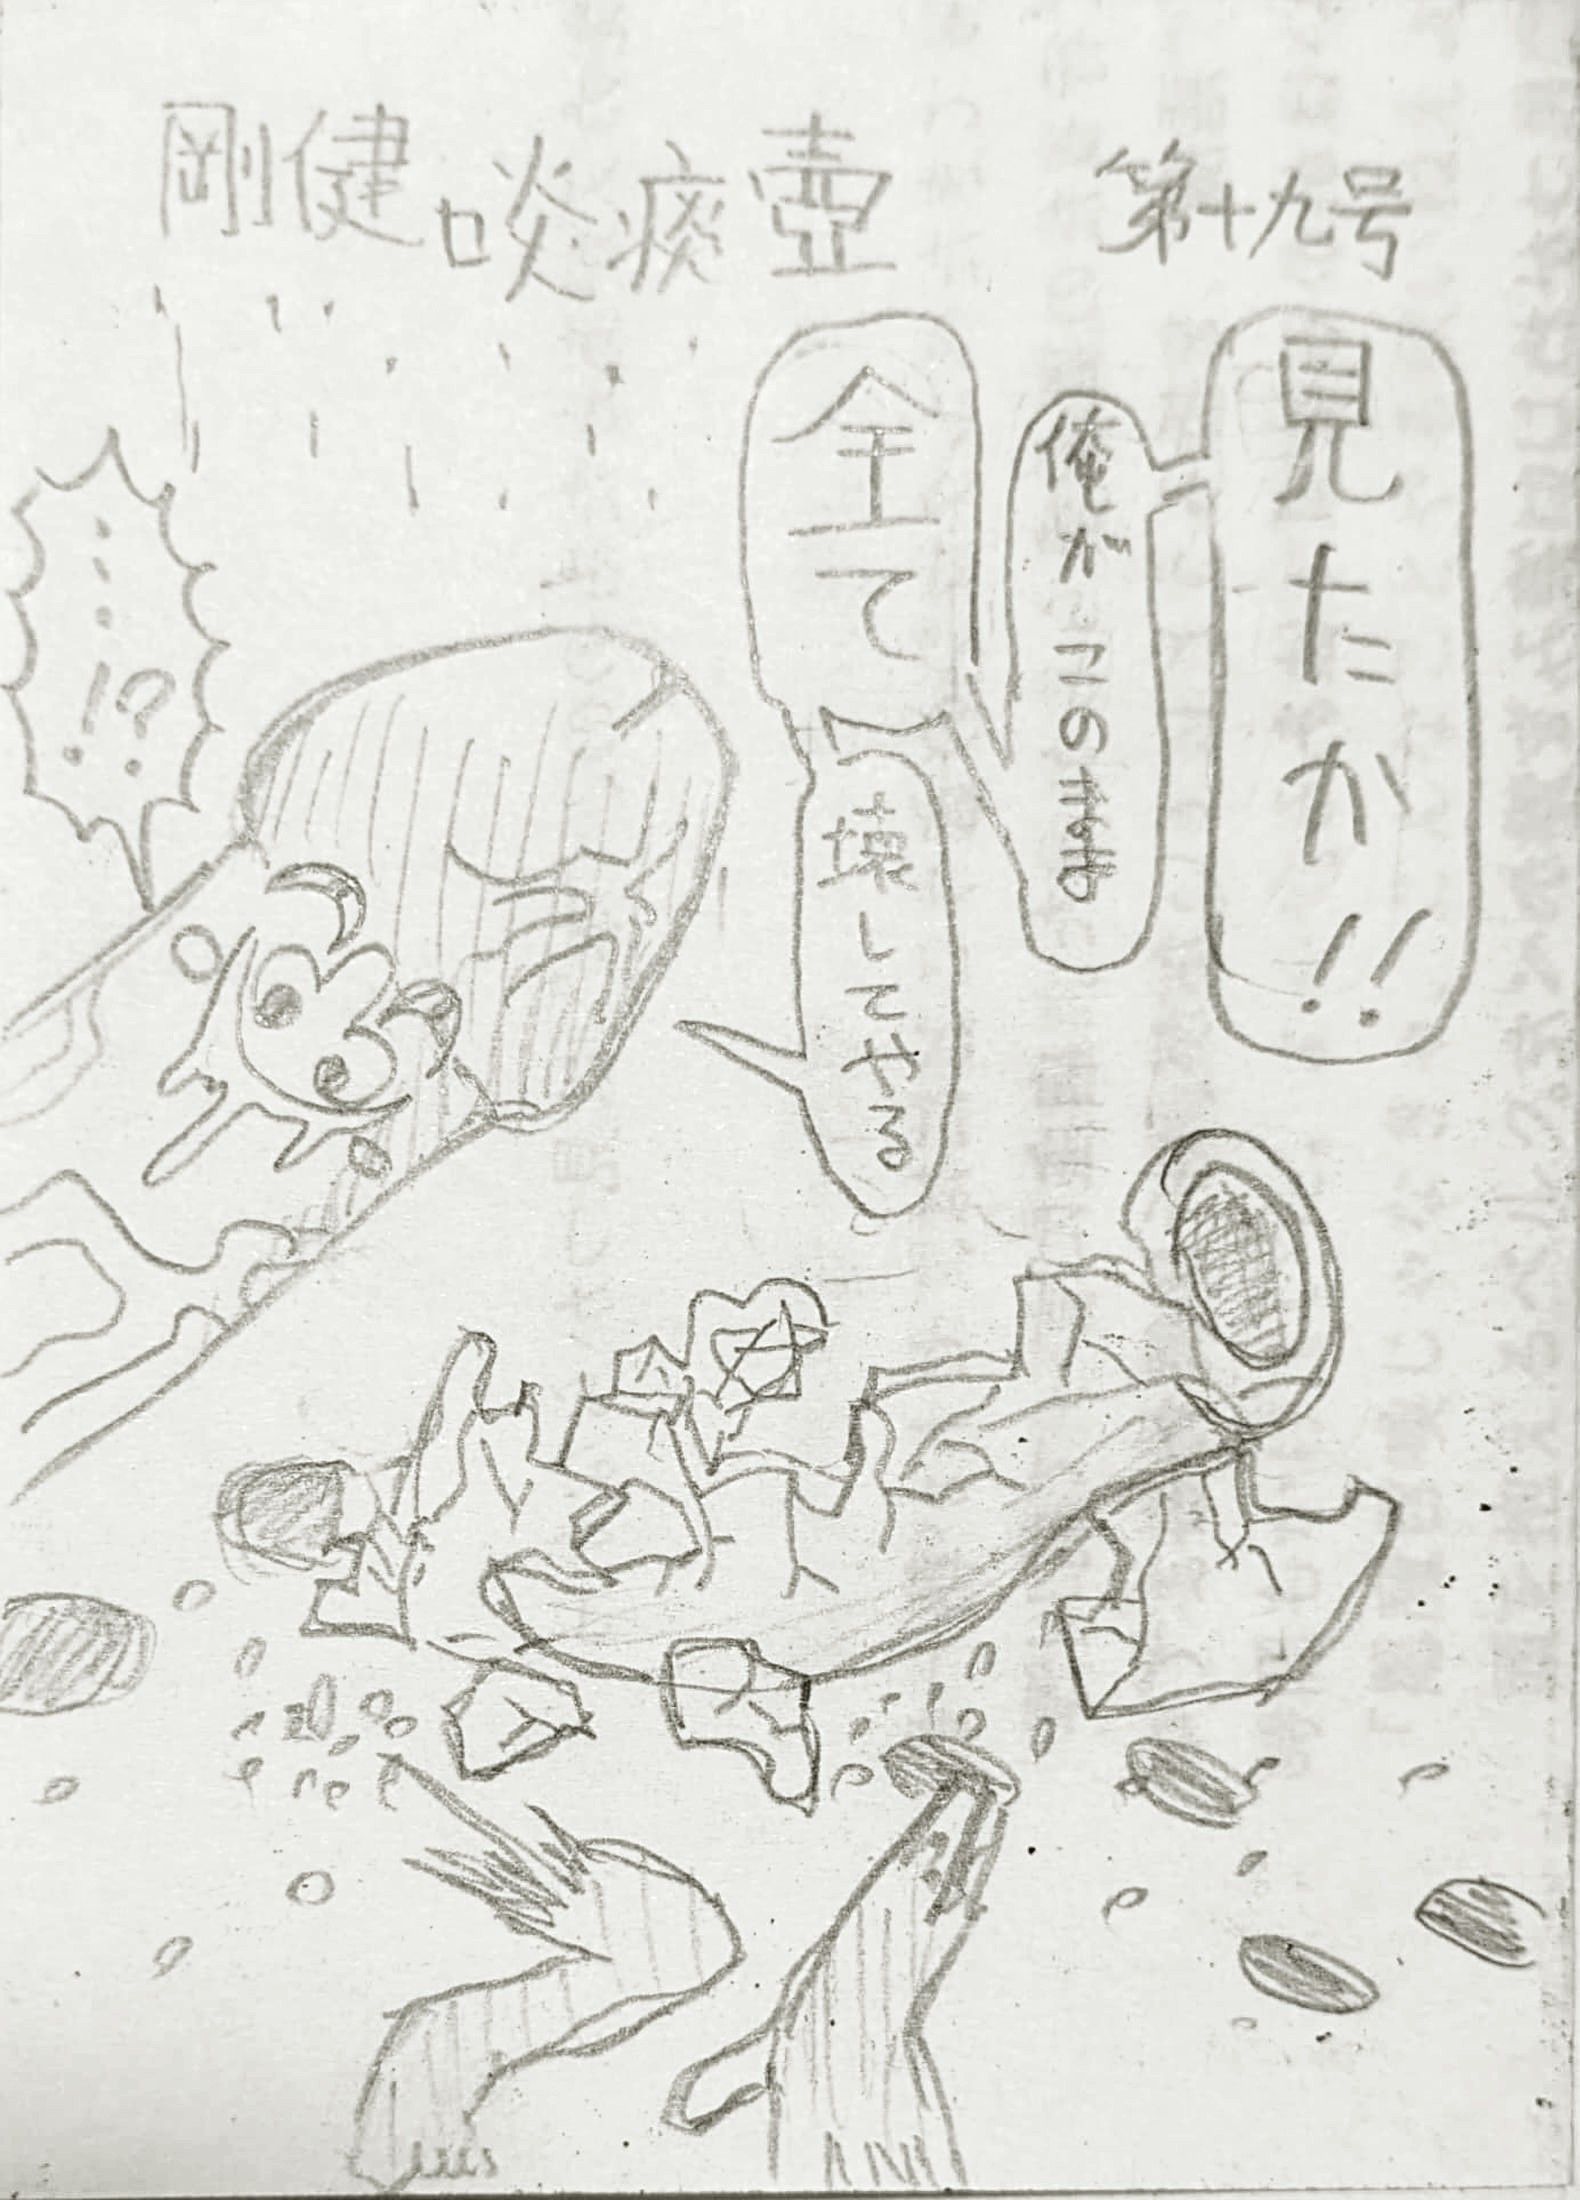 剛健啖痰壺 第十九号
見たか!!
俺がこのまま
全て
壊してやる
…!?